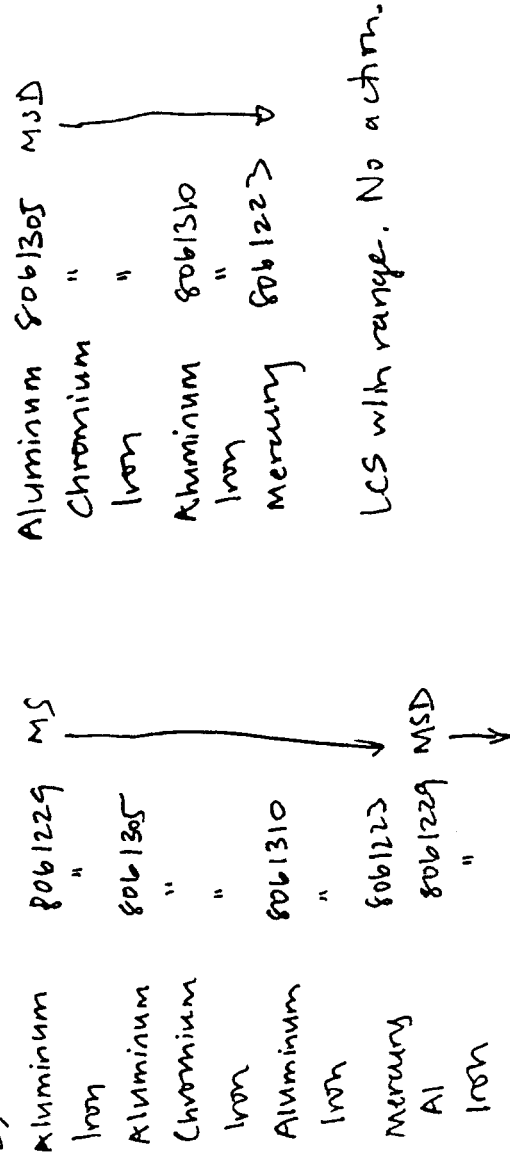 Aluminum 8061229 MS
Iron "
Aluminum 8061305
Chromium "
Iron "
Aluminum 8061310
Iron "
Mercury 8061223
Al 8061229 MSD
Iron "
Aluminum 8061305 MSD
Chromium "
Iron "
Aluminum 8061310
Iron "
Mercury 8061223
LCS w/in range. No action.